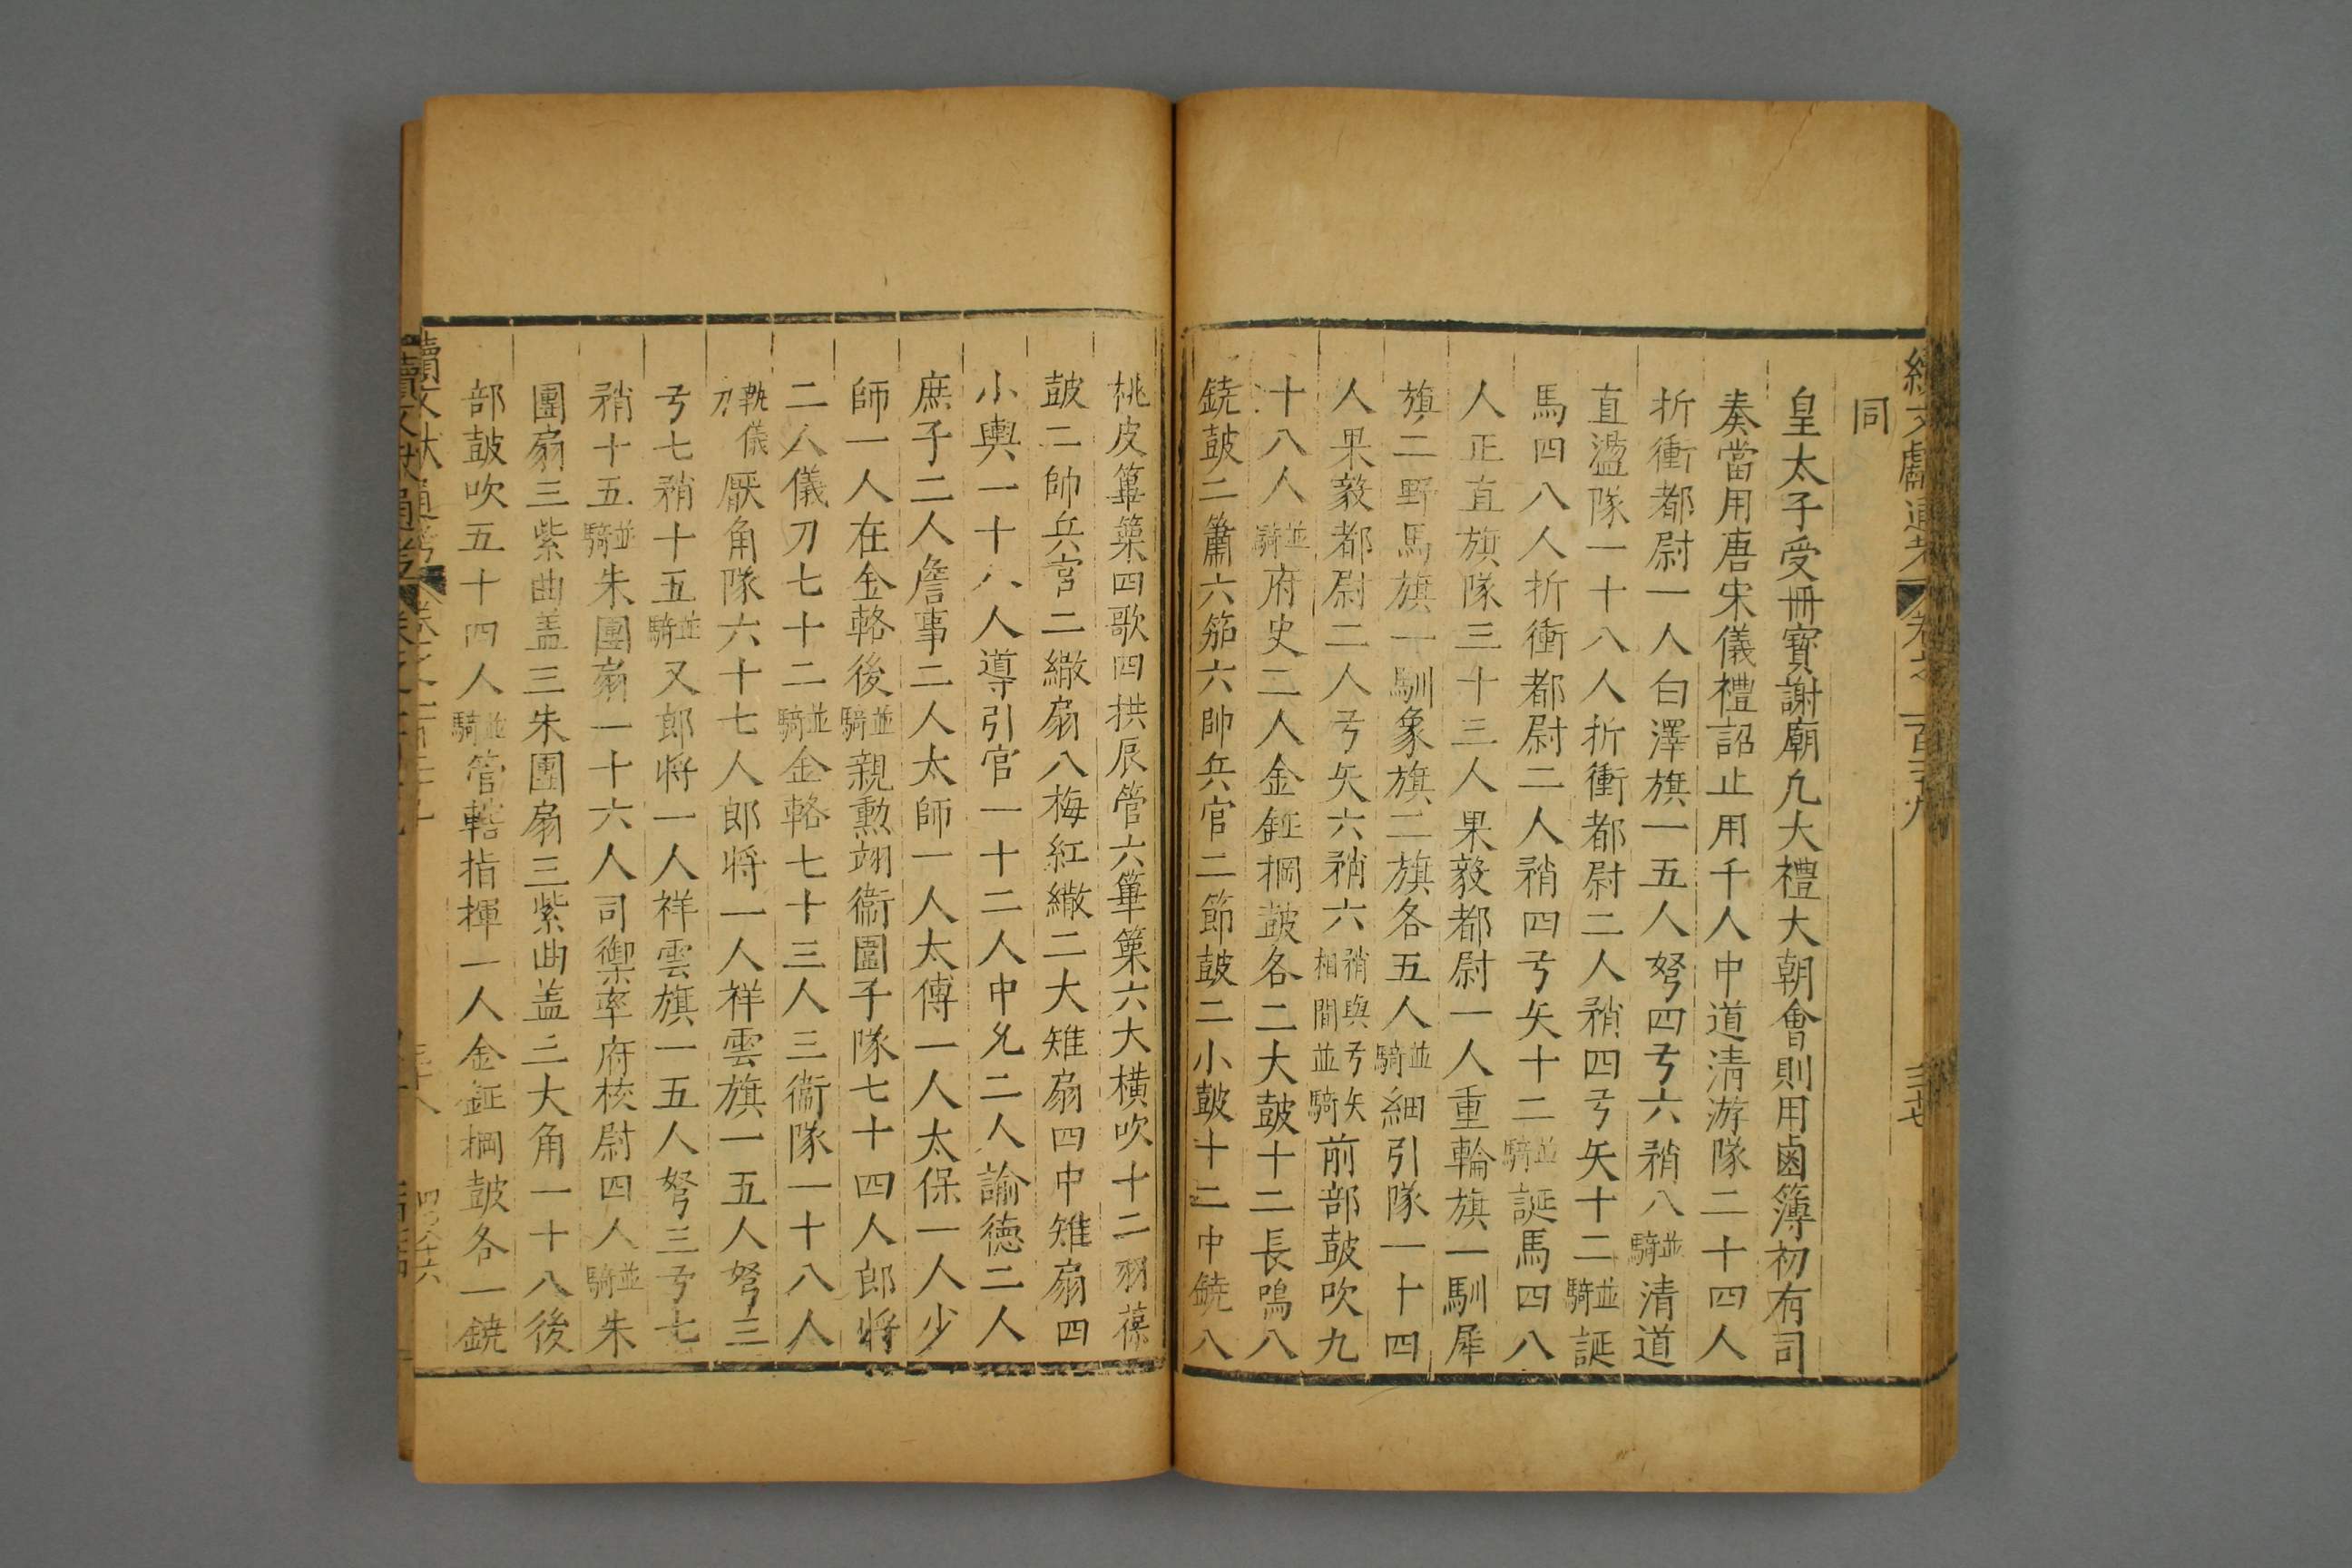 同
皇太子受冊寶謝廟凢大禮大朝會則用鹵簿初有司
奏當用唐宋儀禮詔止用千人中道清游隊二十四人
折衝都尉一人白澤旗一五人弩四弓六矟八並騎清道
直盪隊一十八人折衝都尉二人矟四弓矢十二並騎誕
馬四八人折衝都尉二人矟四弓矢十二並騎誕馬四八
人正直旗隊三十三人果毅都尉一人重輪旗一馴犀
旗二野馬旗一馴象旗二旗各五人並騎細引隊一十四
人果毅都尉二人弓矢六矟六矟與弓矢相間並騎前部鼓吹九
十八人並騎府史二人金鉦棡鼓各二大鼓十二長鳴八
鐃鼓二簫六笳六帥兵官二節鼓二小鼓十二中鐃八
桃皮篳篥四歌四拱辰管六篳篥六大橫吹十二羽葆
鼓二帥兵官二繖扇八梅紅繖二大雉扇四中雉扇四
小輿一十八人導引官一十二人中允二人諭德二人
庶子二人詹事二人太師一人太傅一人太保一人少
師一人在金輅後並騎親勳翊衞圍子隊七十四人郎將
二人儀刀七十二並騎金輅七十三人三衞隊一十八人
執儀刀厭角隊六十七人郎將一人祥雲旗一五人弩三
弓七矟十五並騎又郎將一人祥雲旗一五人弩三弓七
矟十五並騎朱團扇一十六人司禦率府校尉四人並騎朱
團扇三紫曲盖三朱團扇三紫曲盖三大角一十八後
部鼓吹五十四人並騎管轄指揮一人金鉦棡鼓各一鐃